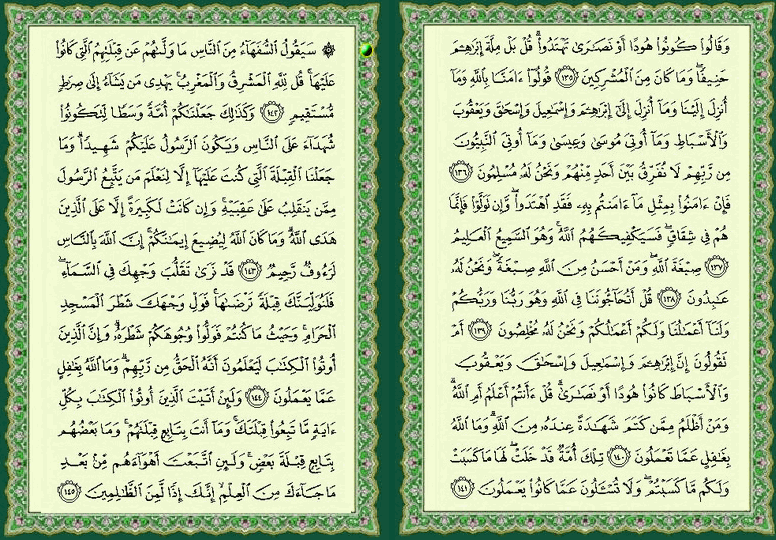 وَقَالُوا۟ كُونُوا۟ هُودًا أَوْ نَصَـٰرَىٰ تَهْتَدُوا۟ ۗ قُلْ بَلْ مِلَّةَ إِبْرَٰهِـۧمَ
حَنِيفًا ۖ وَمَا كَانَ مِنَ ٱلْمُشْرِكِينَ ١٣٥ قُولُوٓا۟ ءَامَنَّا بِٱللَّهِ وَمَآ
أُنزِلَ إِلَيْنَا وَمَآ أُنزِلَ إِلَىٰٓ إِبْرَٰهِـۧمَ وَإِسْمَـٰعِيلَ وَإِسْحَـٰقَ وَيَعْقُوبَ
وَٱلْأَسْبَاطِ وَمَآ أُوتِىَ مُوسَىٰ وَعِيسَىٰ وَمَآ أُوتِىَ ٱلنَّبِيُّونَ
مِن رَّبِّهِمْ لَا نُفَرِّقُ بَيْنَ أَحَدٍ مِّنْهُمْ وَنَحْنُ لَهُۥ مُسْلِمُونَ ١٣٦
فَإِنْ ءَامَنُوا۟ بِمِثْلِ مَآ ءَامَنتُم بِهِۦ فَقَدِ ٱهْتَدَوا۟ ۖ وَّإِن تَوَلَّوْا۟ فَإِنَّمَا
هُمْ فِى شِقَاقٍ ۖ فَسَيَكْفِيكَهُمُ ٱللَّهُ ۚ وَهُوَ ٱلسَّمِيعُ ٱلْعَلِيمُ
١٣٧ صِبْغَةَ ٱللَّهِ ۖ وَمَنْ أَحْسَنُ مِنَ ٱللَّهِ صِبْغَةً ۖ وَنَحْنُ لَهُۥ
عَـٰبِدُونَ ١٣٨ قُلْ أَتُحَآجُّونَنَا فِى ٱللَّهِ وَهُوَ رَبُّنَا وَرَبُّكُمْ
وَلَنَآ أَعْمَـٰلُنَا وَلَكُمْ أَعْمَـٰلُكُمْ وَنَحْنُ لَهُۥ مُخْلِصُونَ ١٣٩ أَمْ
تَقُولُونَ إِنَّ إِبْرَٰهِـۧمَ وَإِسْمَـٰعِيلَ وَإِسْحَـٰقَ وَيَعْقُوبَ
وَٱلْأَسْبَاطَ كَانُوا۟ هُودًا أَوْ نَصَـٰرَىٰ ۗ قُلْ ءَأَنتُمْ أَعْلَمُ أَمِ ٱللَّهُ ۗ
وَمَنْ أَظْلَمُ مِمَّن كَتَمَ شَهَـٰدَةً عِندَهُۥ مِنَ ٱللَّهِ ۗ وَمَا ٱللَّهُ
بِغَـٰفِلٍ عَمَّا تَعْمَلُونَ ١٤٠ تِلْكَ أُمَّةٌ قَدْ خَلَتْ ۖ لَهَا مَا كَسَبَتْ
وَلَكُم مَّا كَسَبْتُمْ ۖ وَلَا تُسْـَٔلُونَ عَمَّا كَانُوا۟ يَعْمَلُونَ ١٤١
۞ سَيَقُولُ ٱلسُّفَهَآءُ مِنَ ٱلنَّاسِ مَا وَلَّىٰهُمْ عَن قِبْلَتِهِمُ ٱلَّتِى كَانُوا۟
عَلَيْهَا ۚ قُل لِّلَّهِ ٱلْمَشْرِقُ وَٱلْمَغْرِبُ ۚ يَهْدِى مَن يَشَآءُ إِلَىٰ صِرَٰطٍ
مُّسْتَقِيمٍ ١٤٢ وَكَذَٰلِكَ جَعَلْنَـٰكُمْ أُمَّةً وَسَطًا لِّتَكُونُوا۟
شُهَدَآءَ عَلَى ٱلنَّاسِ وَيَكُونَ ٱلرَّسُولُ عَلَيْكُمْ شَهِيدًا ۗ وَمَا
جَعَلْنَا ٱلْقِبْلَةَ ٱلَّتِى كُنتَ عَلَيْهَآ إِلَّا لِنَعْلَمَ مَن يَتَّبِعُ ٱلرَّسُولَ
مِمَّن يَنقَلِبُ عَلَىٰ عَقِبَيْهِ ۚ وَإِن كَانَتْ لَكَبِيرَةً إِلَّا عَلَى ٱلَّذِينَ
هَدَى ٱللَّهُ ۗ وَمَا كَانَ ٱللَّهُ لِيُضِيعَ إِيمَـٰنَكُمْ ۚ إِنَّ ٱللَّهَ بِٱلنَّاسِ
لَرَءُوفٌ رَّحِيمٌ ١٤٣ قَدْ نَرَىٰ تَقَلُّبَ وَجْهِكَ فِى ٱلسَّمَآءِ ۖ
فَلَنُوَلِّيَنَّكَ قِبْلَةً تَرْضَىٰهَا ۚ فَوَلِّ وَجْهَكَ شَطْرَ ٱلْمَسْجِدِ
ٱلْحَرَامِ ۚ وَحَيْثُ مَا كُنتُمْ فَوَلُّوا۟ وُجُوهَكُمْ شَطْرَهُۥ ۗ وَإِنَّ ٱلَّذِينَ
أُوتُوا۟ ٱلْكِتَـٰبَ لَيَعْلَمُونَ أَنَّهُ ٱلْحَقُّ مِن رَّبِّهِمْ ۗ وَمَا ٱللَّهُ بِغَـٰفِلٍ
عَمَّا يَعْمَلُونَ ١٤٤ وَلَئِنْ أَتَيْتَ ٱلَّذِينَ أُوتُوا۟ ٱلْكِتَـٰبَ بِكُلِّ
ءَايَةٍ مَّا تَبِعُوا۟ قِبْلَتَكَ ۚ وَمَآ أَنتَ بِتَابِعٍ قِبْلَتَهُمْ ۚ وَمَا بَعْضُهُم
بِتَابِعٍ قِبْلَةَ بَعْضٍ ۚ وَلَئِنِ ٱتَّبَعْتَ أَهْوَآءَهُم مِّنۢ بَعْدِ
مَا جَآءَكَ مِنَ ٱلْعِلْمِ ۙ إِنَّكَ إِذًا لَّمِنَ ٱلظَّـٰلِمِينَ ١٤٥